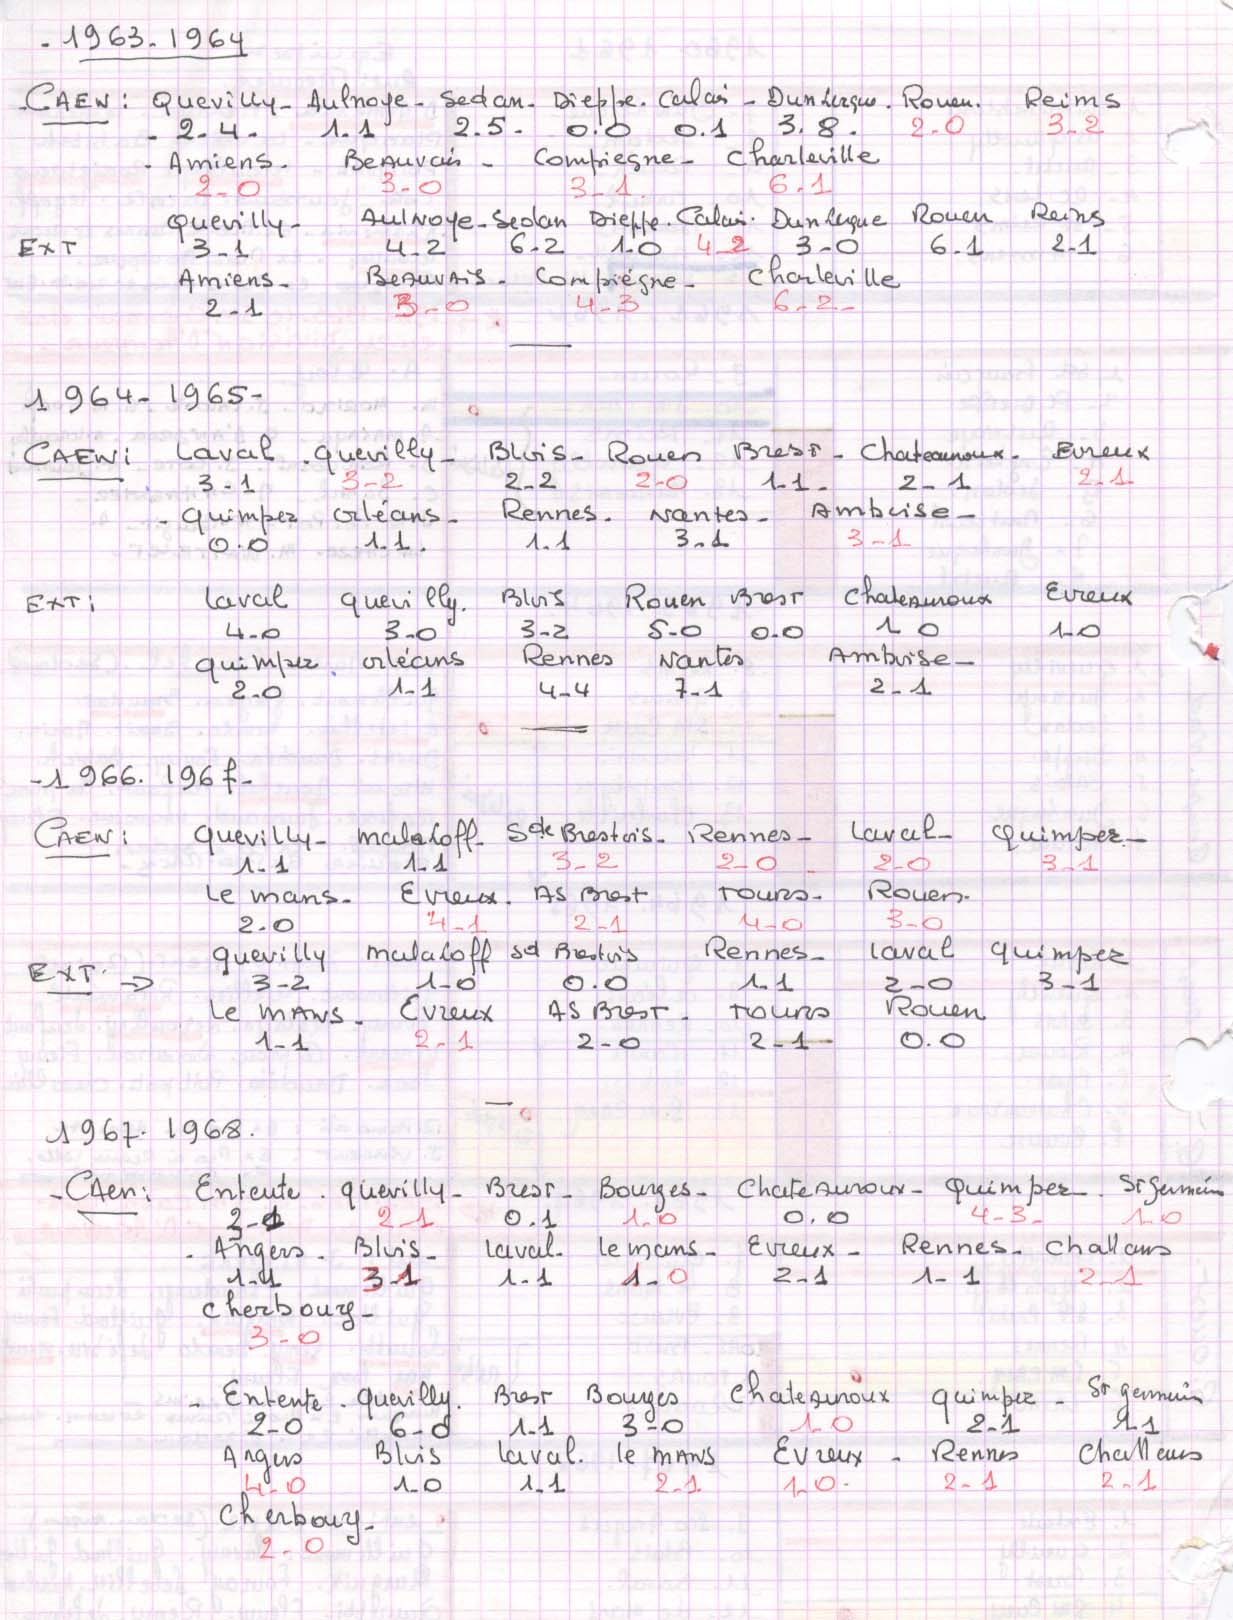 - 1963-1964
CAEN: Quevilly - Aulnoye - Sedan - Dieppe. Calais - Dunkerque. Rouen. Reims
- 2-4. 1.1 2.5. 0.0 0.1 3.8. 2-0 3-2
- Amiens. Beauvais - Compiegne - Charleville
2-0 3-0 3-1 6.1
Quevilly - AULNOYE - Sedan Dieppe. Calais. Dunkerque Rouen Reims
EXT 3-1 4-2 6-2 1.0 4-2 3-0 6.1 2-1
Amiens - BEAUVAIS. Compiégne - Charleville
2-1 3-0 4-3 6-2-
1964-1965-
CAEN: Laval. Quevilly - Blois - Rouen Brest - Chateauroux. Evreux
3-1 3-2 2-2 2-0 1-1- 2-1 2-1
- Quimper Orléans - Rennes. Nantes - Amboise -
0.0 1.1. 1.1 3-1 3-1
EXT: Laval Quevilly. Blois Rouen Brest Chateauroux Evreux
4-0 3-0 3-2 5-0 0.0 1 0 1-0
Quimper. Orléans Rennes Nantes Amboise -
2-0 1-1 4-4 7-1 2-1
-1966. 1967-
CAEN: Quevilly - Malakoff - Sde Brestois - Rennes - Laval - Quimper -
1.1 1.1 3-2 2-0 2-0 3-1
Le mans. Evreux. AS Brest Tours. Rouen.
2.0 4-1 2-1 4-0 3-0
Quevilly Malakoff Sd Brestois Rennes - Laval Quimper
EXT → 3-2 1-0 0.0 1.1 2-0 3-1
Le MANS. Evreux AS BREST. Tours Rouen
1-1 2-1 2-0 2-1 0.0
1967. 1968.
- CAen: Entente. Quevilly - Brest - Bourges - ChateAuroux - Quimper. St Germain
2-1 2-1 0.1 1.0 0.0 4-3- 1.0
- Angers. Blois - Laval. Le mans - Evreux - Rennes - Challans
1-1 3-1 1-1 1-0 2-1 1-1 2-1
Cherbourg -
3-0
- Entente. Quevilly. Brest Bourges Chateauroux Quimper - St germain
2-0 6-0 1.1 3-0 1.0 2-1 1.1
Angers Blois Laval. le MANS Evreux - Rennes Challans
4-0 1.0 1.1 2-1 1.0. 2-1 2-1
Cherbourg -
2-0